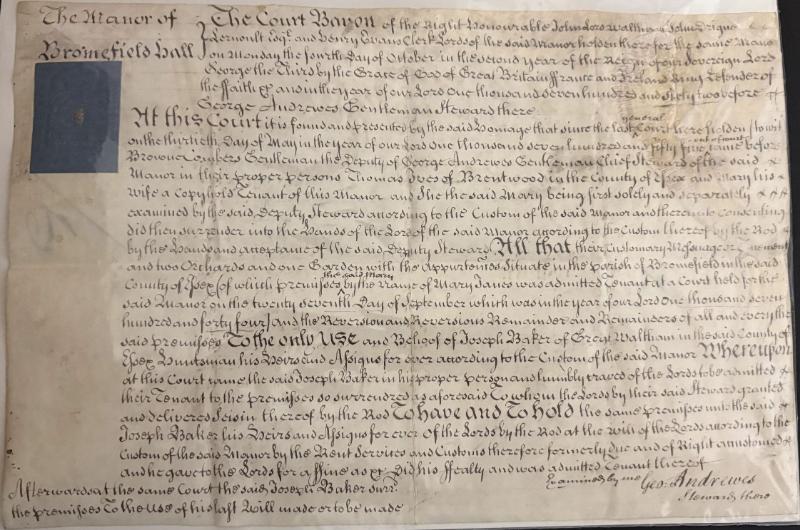 The Manor of Bromefield Hall
The Court Baron of the Right Honourable John Lord Waltham John
Vermoult Esqr. and Henry Evans Clerk Lords of the said Manor holden there for the same Manor
on Monday the fourth Day of October in the second year of the Reign of our Sovereign Lord
George the Third by the Grace of God of Great Britain ffrance and Ireland King Defender of
the ffaith &c and in the year of our Lord One thousand seven hundred and Sixty two before
George Andrewes Gentleman Steward there
At this Court it is found and presented by the said Homage that since the last general Court here holden (to wit)
on the thirtieth Day of May in the year of our Lord One thousand seven hundred and fifty five came before
out of Court
Browne Gentleman the Deputy of George Andrewes Gentleman Chief Steward of the said
Manor in their proper persons Thomas Ives of Brentwood in the County of Essex and Mary his
Wife a Copyhold Tenant of this Manor and She the said Mary being first solely and separately
examined by the said Deputy Steward according to the Custom of the said Manor and thereunto consenting
did then surrender into the Hands of the Lords of the said Manor according to the Custom thereof by the Rod
by the Hands and acceptance of the said Deputy Steward All that their Customary Messuage or Tenement
and two Orchards and one Garden with the Appurtences Situate in the parish of Bromefield in the said
County of Essex (of which premisses the said Mary by the Name of Mary was admitted Tenant at a Court held for the
said Manor on the twenty seventh Day of September which was in the year of our Lord One thousand seven
hundred and forty four) and the Reversion and Reversions Remainder and Remainders of all and every the
said premisses To the only Use and Behoof of Joseph Baker of Great Waltham in the said County of
Essex Huntsman his Heirs and Assigns for ever according to the Custom of the said Manor Whereupon
at this Court came the said Joseph Baker in his proper person and humbly craved of the Lords to be admitted
their Tenant to the premisses so surrendred as aforesaid To whom the Lords by their said Steward granted
and delivered Seisin thereof by the Rod To have and To hold the same premisses unto the said
Joseph Baker his Heirs and Assigns for ever Of the Lords by the Rod at the Will of the Lords according to the
Custom of the said Manor by the Rent Services and Customs therefore formerly due and of Right accustomed
and he gave to the Lords for a ffine as &c Did his ffealty and was admitted Tenant thereof
Examined by me
Geo: Andrewes
Steward there
Afterwards at the same Court the said Joseph Baker surr:
the premisses To the Use of his last Will made or to be made